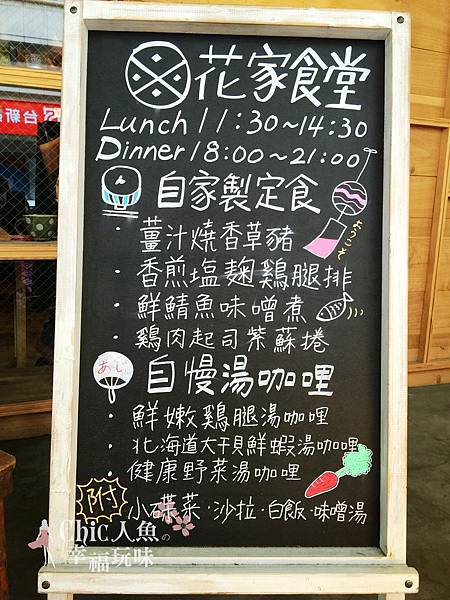 花家食堂
Lunch 11:30~14:30
Dinner 18:00~21:00
自家製定食
ようこそ
・薑汁燒香草豬
・香煎塩麹雞腿排
・鮮鯖魚味噌煮
・鷄肉起司紫蘇捲
自慢湯咖哩
・鮮嫩鷄腿湯咖哩
・北海道大干貝鮮蝦湯咖哩
・健康野菜湯咖哩
附 小碟菜·沙拉·白飯·味噌湯
Chic人魚の
幸福玩味
台新